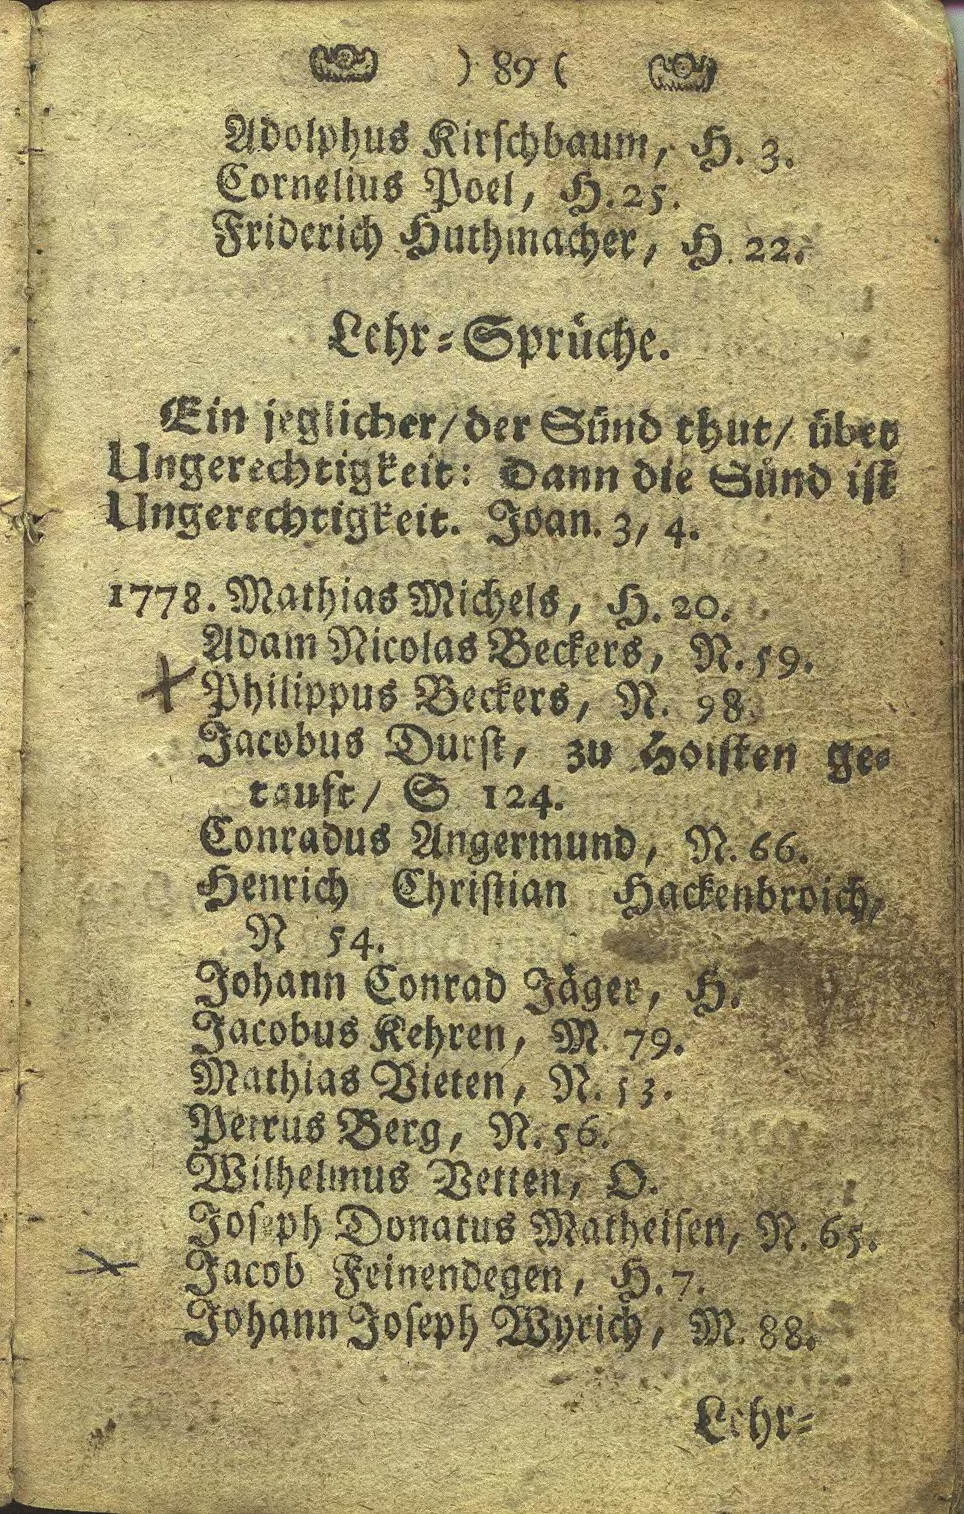 ) 89 (
Adolphus Kirschbaum, H. 3.
Cornelius Poel, H. 25.
Friderich Huthmacher, H. 22.
Lehr-Sprüche.
Ein jeglicher/ der Sünd thut/ übet
Ungerechtigkeit: Dann die Sünd ist
Ungerechtigkeit. Joan. 3, 4.
1778. Mathias Michels, H. 20.
Adam Nicolas Beckers, N. 59.
Philippus Beckers, N. 98.
Jacobus Durst, zu Hoisten ge-
tauft/ S 124.
Conradus Angermund, N. 66.
Henrich Christian Hackenbroich,
N 54.
Johann Conrad Jäger, H.
Jacobus Kehren, M. 79.
Mathias Vieten, N. 53.
Petrus Berg, N. 56.
Wilhelmus Vetten, O.
Joseph Donatus Matheisen, N. 65.
Jacob Feinendegen, H. 7.
Johann Joseph Wyrich, M. 88.
Lehr-